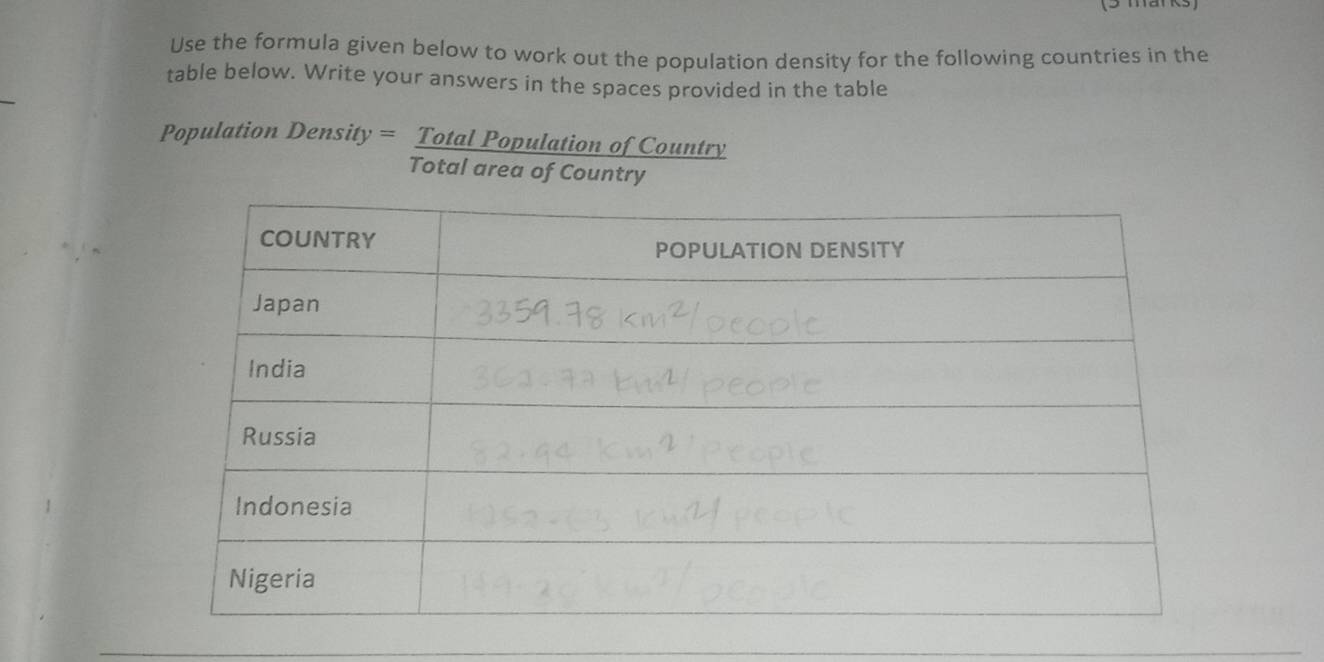 Use the formula given below to work out the population density for the following countries in the
table below. Write your answers in the spaces provided in the table
Population Density = Total Population of Country
Total area of Country
COUNTRY POPULATION DENSITY
Japan 3359.78 km2/people
India km2/people
Russia 82.94 km2/people
Indonesia km2/people
Nigeria km2/people